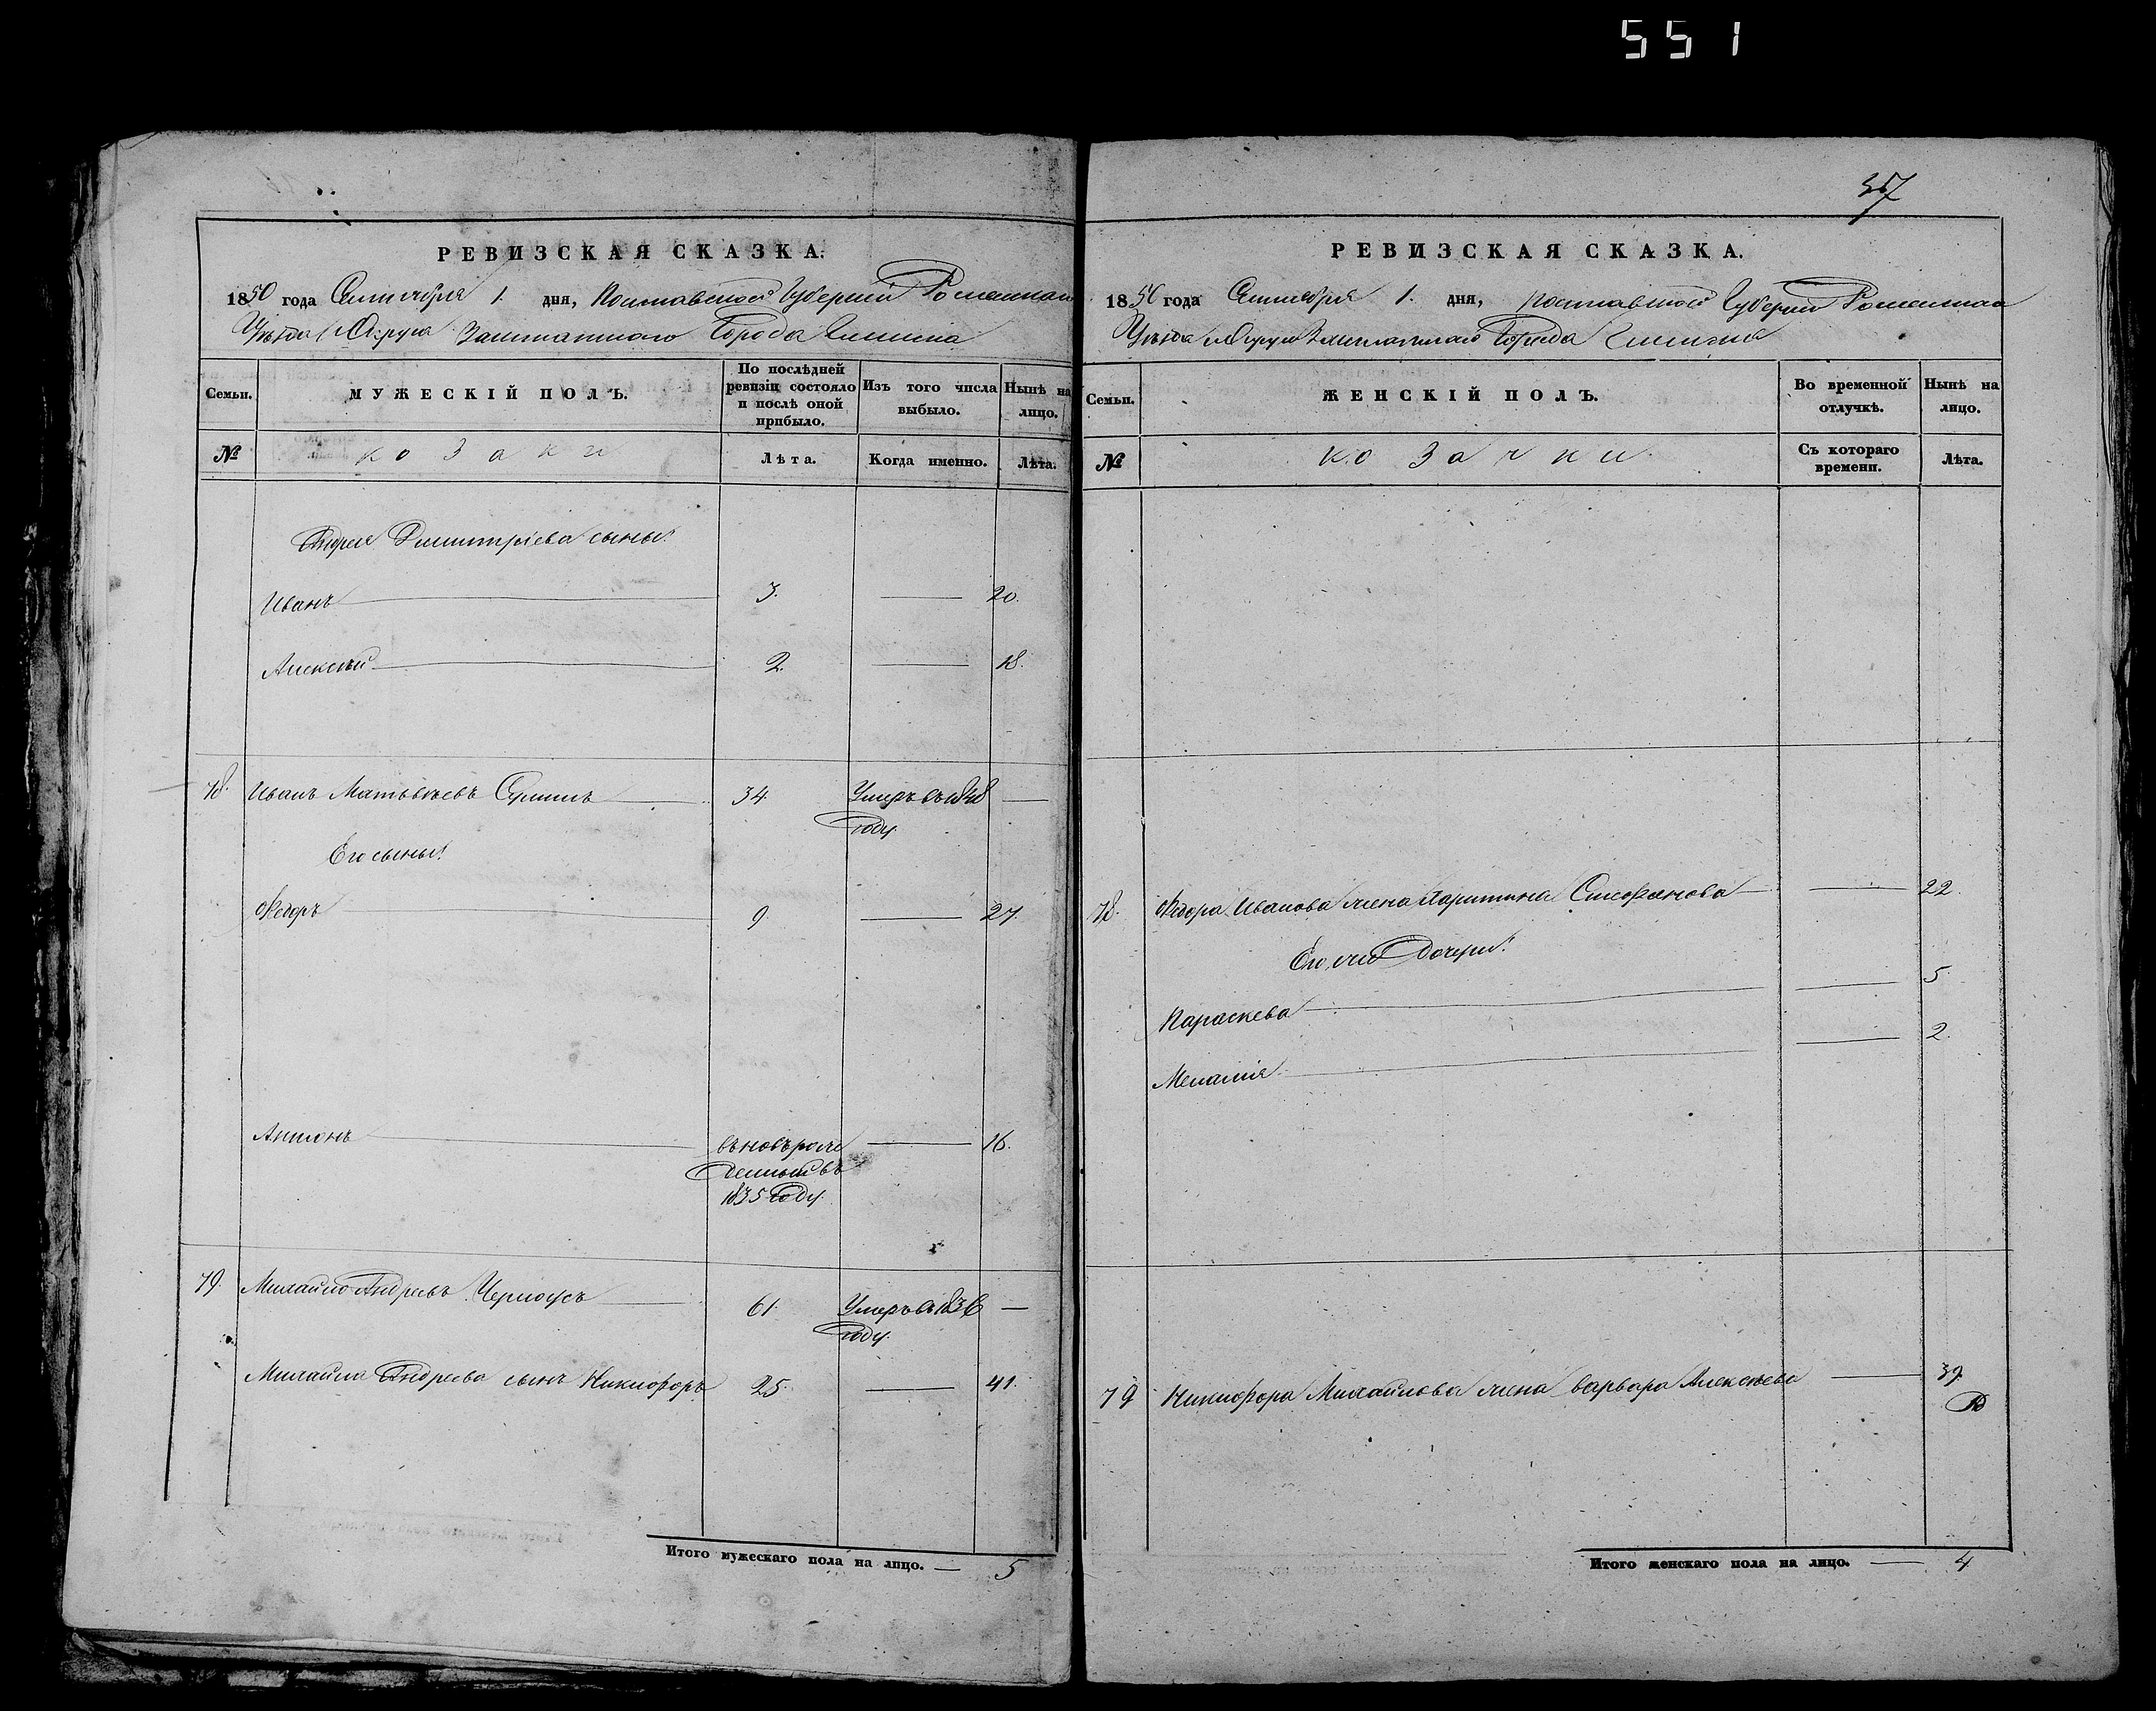 551
РЕВИЗСКАЯ СКАЗКА.
1850 года Сентября 1. дня, Полтавской Губерніи Роменскаго
Уѣзда / Округа Заштатнаго Города Глинска
Семьи.
МУЖЕСКІЙ ПОЛЪ.
По послѣдней ревизіи состояло и послѣ оной прибыло.
Изъ того числа выбыло.
Нынѣ на лицо.
№
козаки
Лѣта.
Когда именно.
Лѣта.
Андрея Дмитріева сыны:
Иванъ 3. — 20.
Алексѣй 2. — 18.
78. Иванъ Матвѣевъ 34. Умеръ въ 1848 —
году.
Его сыны:
Федоръ 9 — 27.
Антонъ вновь рож — 16.
денный въ
1835 году.
79. Михайло Андреевъ Черноусъ 61. Умеръ въ 1836 —
году.
Михайла Андреева сынъ Никифоръ 25. — 41.
Итого мужескаго пола на лицо. — 5
37
РЕВИЗСКАЯ СКАЗКА.
1850 года Сентября 1. дня, Полтавской Губерніи Роменскаго
Уѣзда / Округа Заштатнаго Города Глинска
Семьи.
ЖЕНСКІЙ ПОЛЪ.
Во временной отлучкѣ.
Нынѣ на лицо.
№
козачки
Съ котораго времени.
Лѣта.
78. Федора Иванова жена Харитина Стефанова — 22.
Его дочери:
Параскева — 5.
Меланія — 2.
79 Никифора Михайлова жена Варвара Алексѣева — 39.
Итого женскаго пола на лицо. — 4